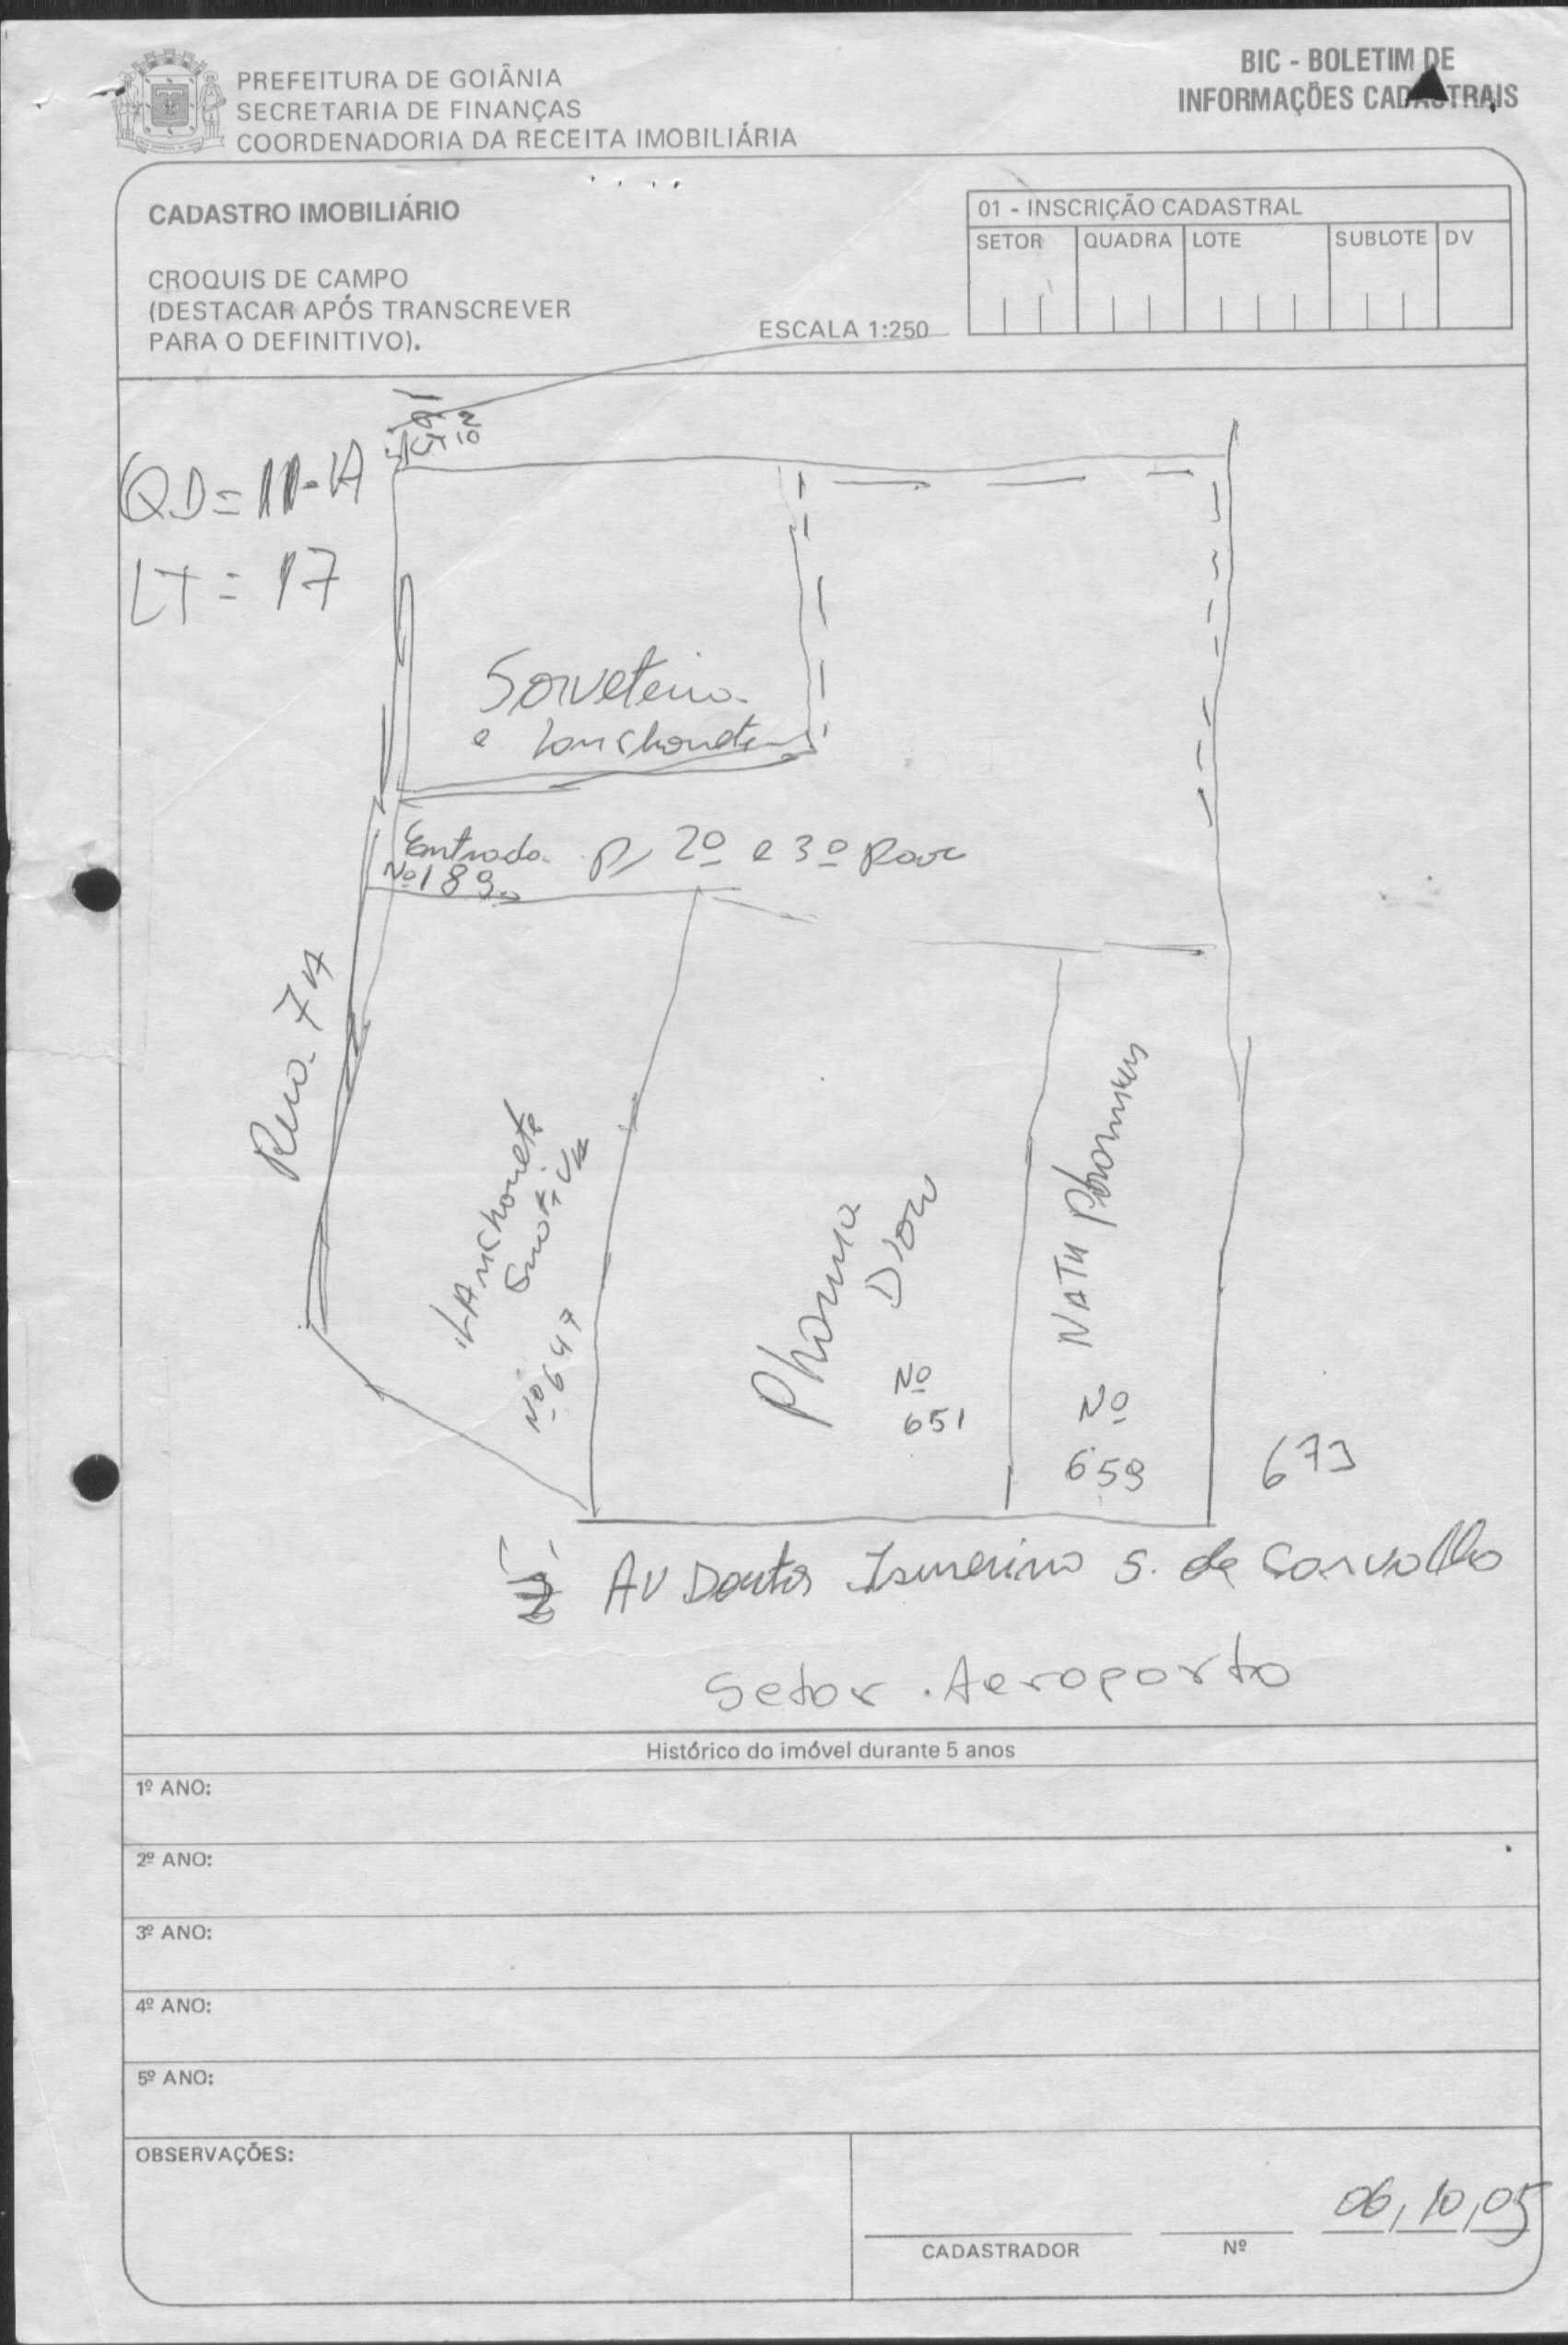 PREFEITURA DE GOIÂNIA
SECRETARIA DE FINANÇAS
COORDENADORIA DA RECEITA IMOBILIÁRIA
BIC - BOLETIM DE
INFORMAÇÕES CADASTRAIS
CADASTRO IMOBILIÁRIO
CROQUIS DE CAMPO
(DESTACAR APÓS TRANSCREVER
PARA O DEFINITIVO).
ESCALA 1:250
01 - INSCRIÇÃO CADASTRAL
SETOR QUADRA LOTE SUBLOTE DV
QD = 11-A
LT = 17
Sorveteria
e Lanchonete
Entrada p/ 2º e 3º Pav
Nº 189
Rua 7A
Lanchonete
Nº 647
Pharma
Nº
651
NATU Pharmus
Nº
659
673
AV Doutor Ismerino S. de Carvalho
Setor Aeroporto
Histórico do imóvel durante 5 anos
1º ANO:
2º ANO:
3º ANO:
4º ANO:
5º ANO:
OBSERVAÇÕES:
06, 10, 05
CADASTRADOR Nº